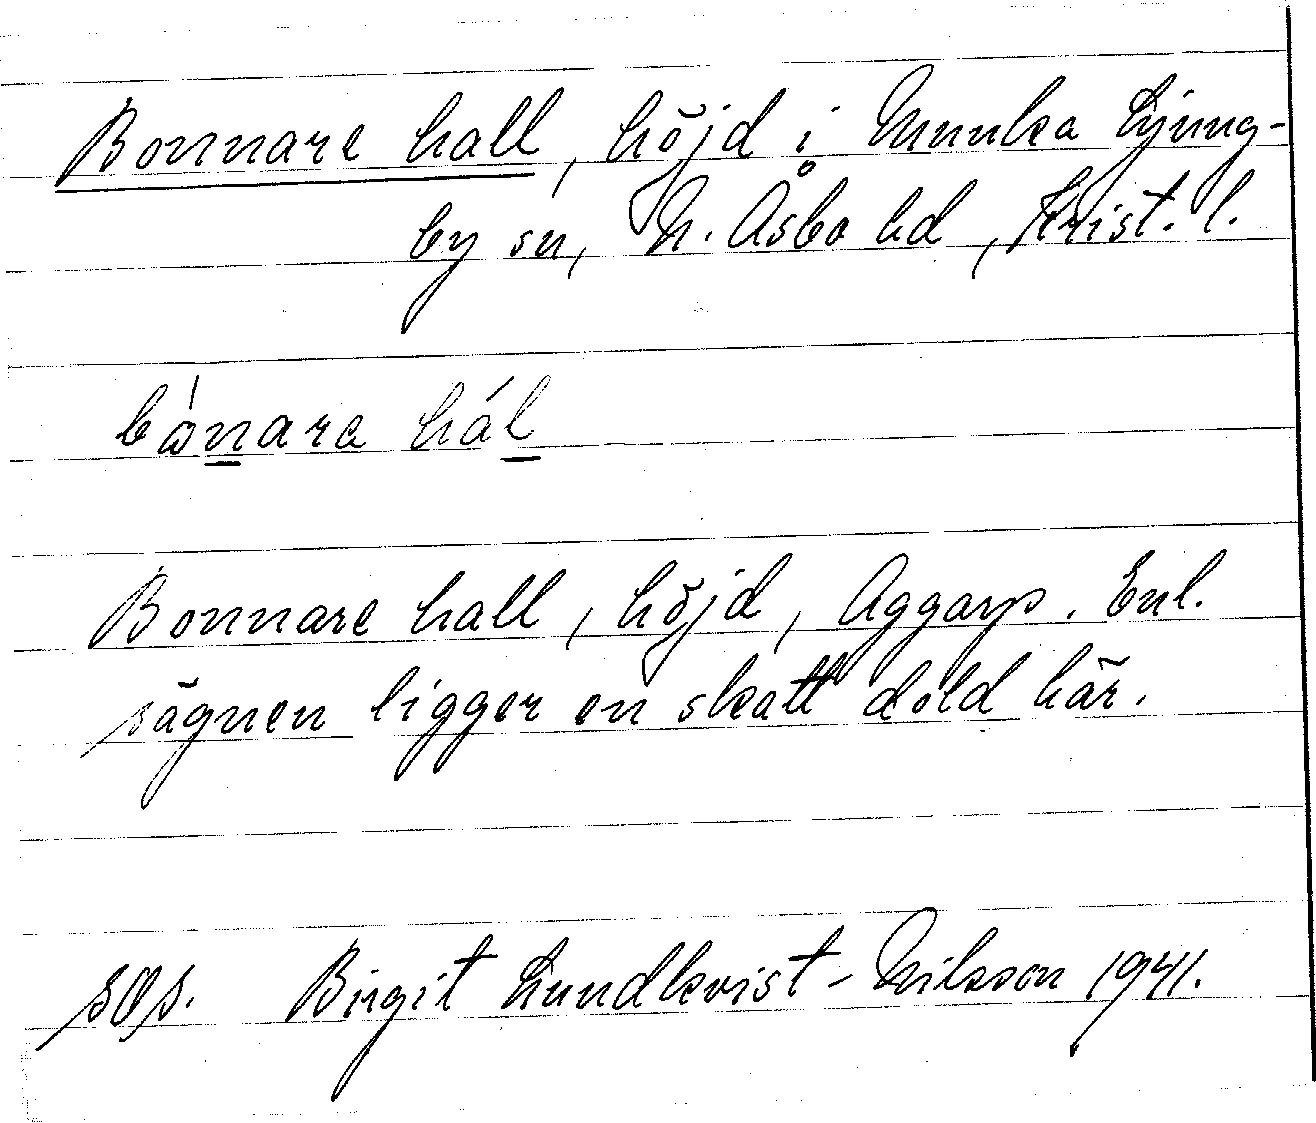 Bonnare hall, höjd i Munka Ljung-
by sn, N. Åsbo hd, Krist. l.
bónara hál
Bonnare hall, höjd, Aggarp. Enl.
sägnen ligger en skatt dold här.
Birgit Lundkvist-Nilsson 1941.